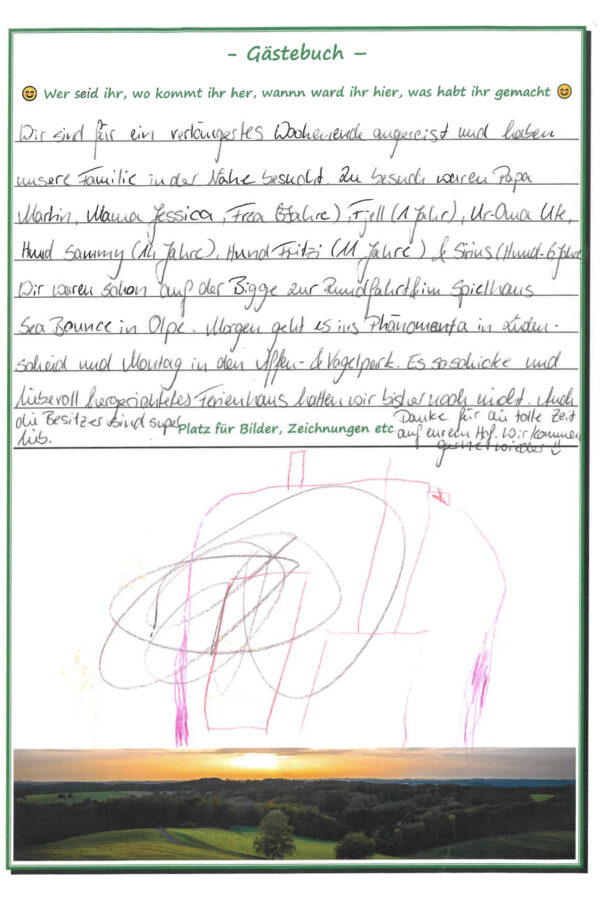 - Gästebuch –
Wer seid ihr, wo kommt ihr her, wannn ward ihr hier, was habt ihr gemacht
Wir sind für ein verlängertes Wochenende angereist und haben
unsere Familie in der Nähe besucht. Zu besuch waren Papa
Martin, Mama Jessica, Frea (5Jahre), Fjell (1 Jahr), Ur-Oma Ute,
Hund Sammy (14 Jahre), Hund Fritzi (11 Jahre) & Sirius (Hund-6 Jahre
Wir waren schon auf der Bigge zur Rundfahrt & im Spielhaus
Sea Bounce in Olpe. Morgen geht es ins Phänomenta in Lüden-
scheid und Montag in den Affen- & Vogelpark. Es so schicke und
liebevoll hergerichtetes Ferienhaus hatten wir bisher noch nicht. Auch
die Besitzer sind super
lieb.
Danke für die tolle Zeit
auf eurem Hof. Wir kommen
gerne wieder
Platz für Bilder, Zeichnungen etc